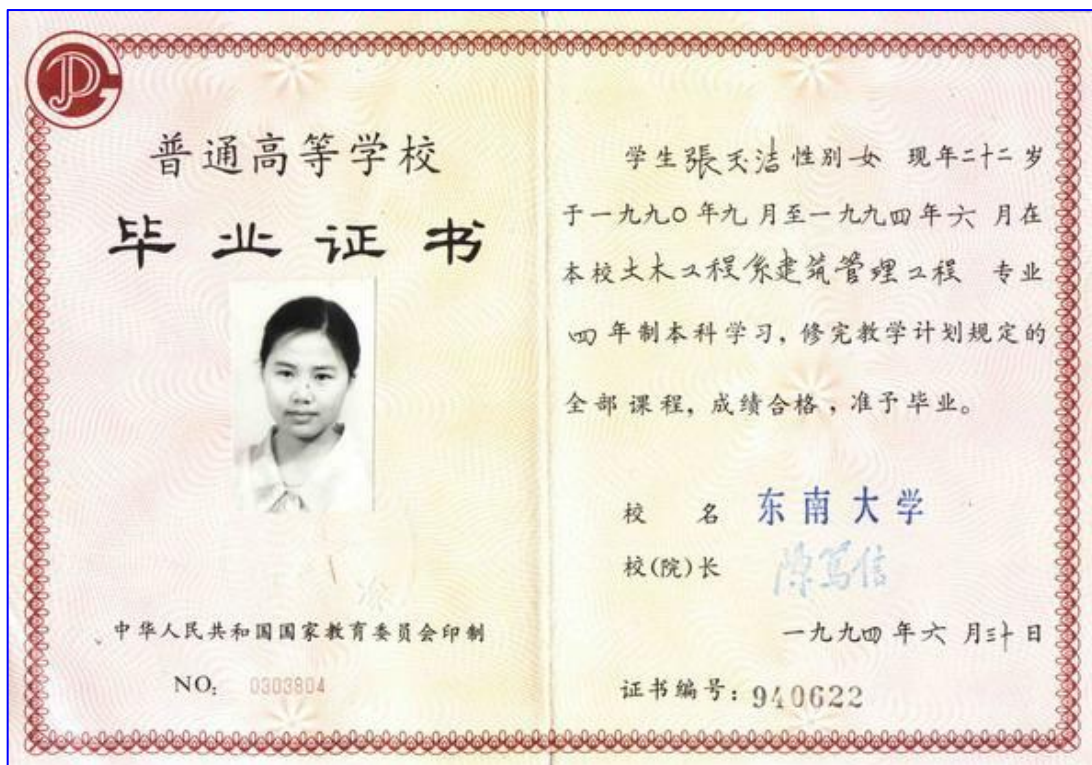 普通高等学校
毕业证书
中华人民共和国国家教育委员会印制
NO: 0303804
学生張天洁性别女 现年二十二岁
于一九九〇年九月至一九九四年六月在
本校土木工程系建筑管理工程 专业
四年制本科学习，修完教学计划规定的
全部课程，成绩合格，准予毕业。
校 名 东南大学
校(院)长 陈笃信
一九九四年六月三十日
证书编号：940622